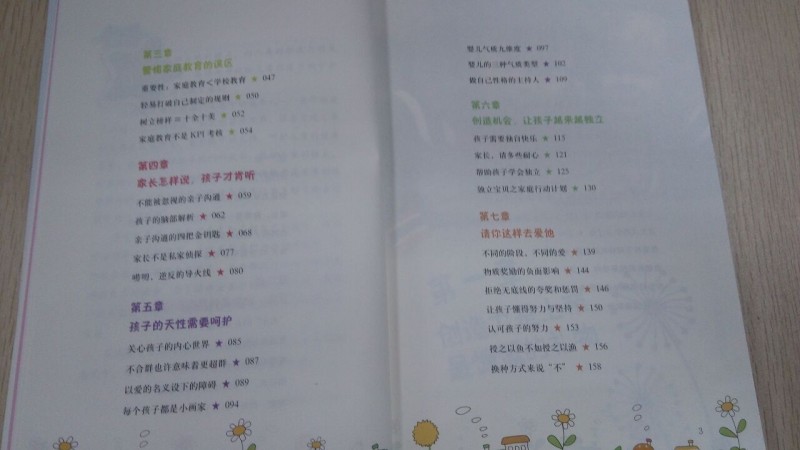 第三章
警惕家庭教育的误区
重要性：家庭教育<学校教育 ★ 047
轻易打破自己制定的规则 ★ 050
树立榜样＝十全十美 ★ 052
家庭教育不是 KPI 考核 ★ 054
第四章
家长怎样说，孩子才肯听
不能被忽视的亲子沟通 ★ 059
孩子的脑部解析 ★ 062
亲子沟通的四把金钥匙 ★ 068
家长不是私家侦探 ★ 077
唠叨，逆反的导火线 ★ 080
第五章
孩子的天性需要呵护
关心孩子的内心世界 ★ 085
不合群也许意味着更超群 ★ 087
以爱的名义设下的障碍 ★ 089
每个孩子都是小画家 ★ 094
婴儿气质九维度 ★ 097
婴儿的三种气质类型 ★ 102
做自己性格的主持人 ★ 109
第六章
创造机会，让孩子越来越独立
孩子需要独自快乐 ★ 115
家长，请多些耐心 ★ 121
帮助孩子学会独立 ★ 125
独立宝贝之家庭行动计划 ★ 130
第七章
请你这样去爱他
不同的阶段，不同的爱 ★ 139
物质奖励的负面影响 ★ 144
拒绝无底线的夸奖和惩罚 ★ 146
让孩子懂得努力与坚持 ★ 150
认可孩子的努力 ★ 153
授之以鱼不如授之以渔 ★ 156
换种方式来说“不” ★ 158
3